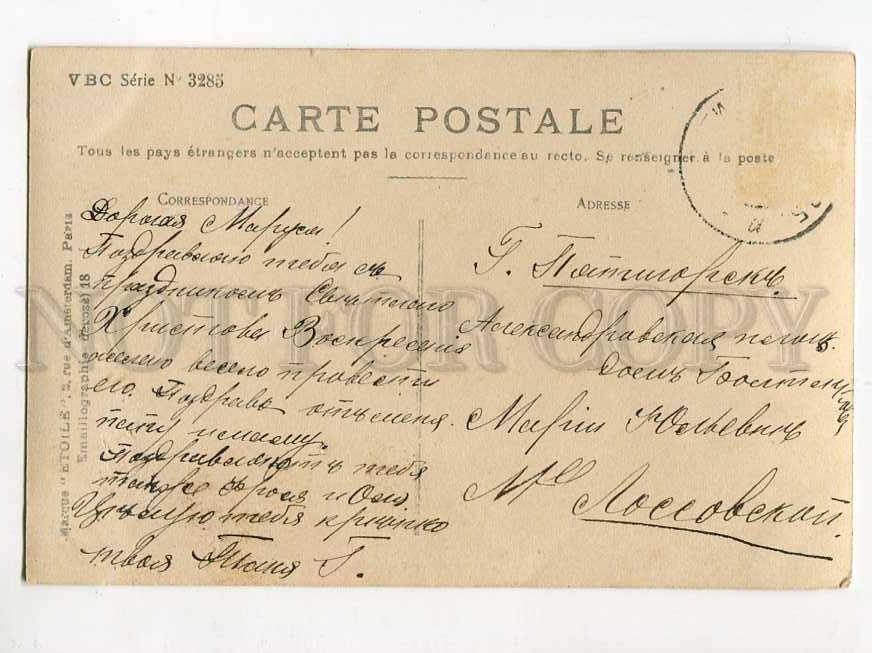 VBC Série Nº 3285
CARTE POSTALE
Tous les pays étrangers n'acceptent pas la correspondance au recto. Se renseigner à la poste
CORRESPONDANCE
Дорогая Маруся!
Поздравляю тебя съ
праздникомъ Светлаго
Христова Воскресенія
желаю весело провести
его. Поздравь отъ меня
папу и маму.
Поздравляютъ тебя
также и Оля
Цѣлую тебя крѣпко
твоя Таня Г.
ADRESSE
Г. Пятигорскъ.
Александровская
домъ
Маріи Юльевнѣ
Mlle
Лоссовской.
Marque "ETOILE", 2, rue d'Amsterdam, Paris
Émaillographie 18
NOTEOR COPY